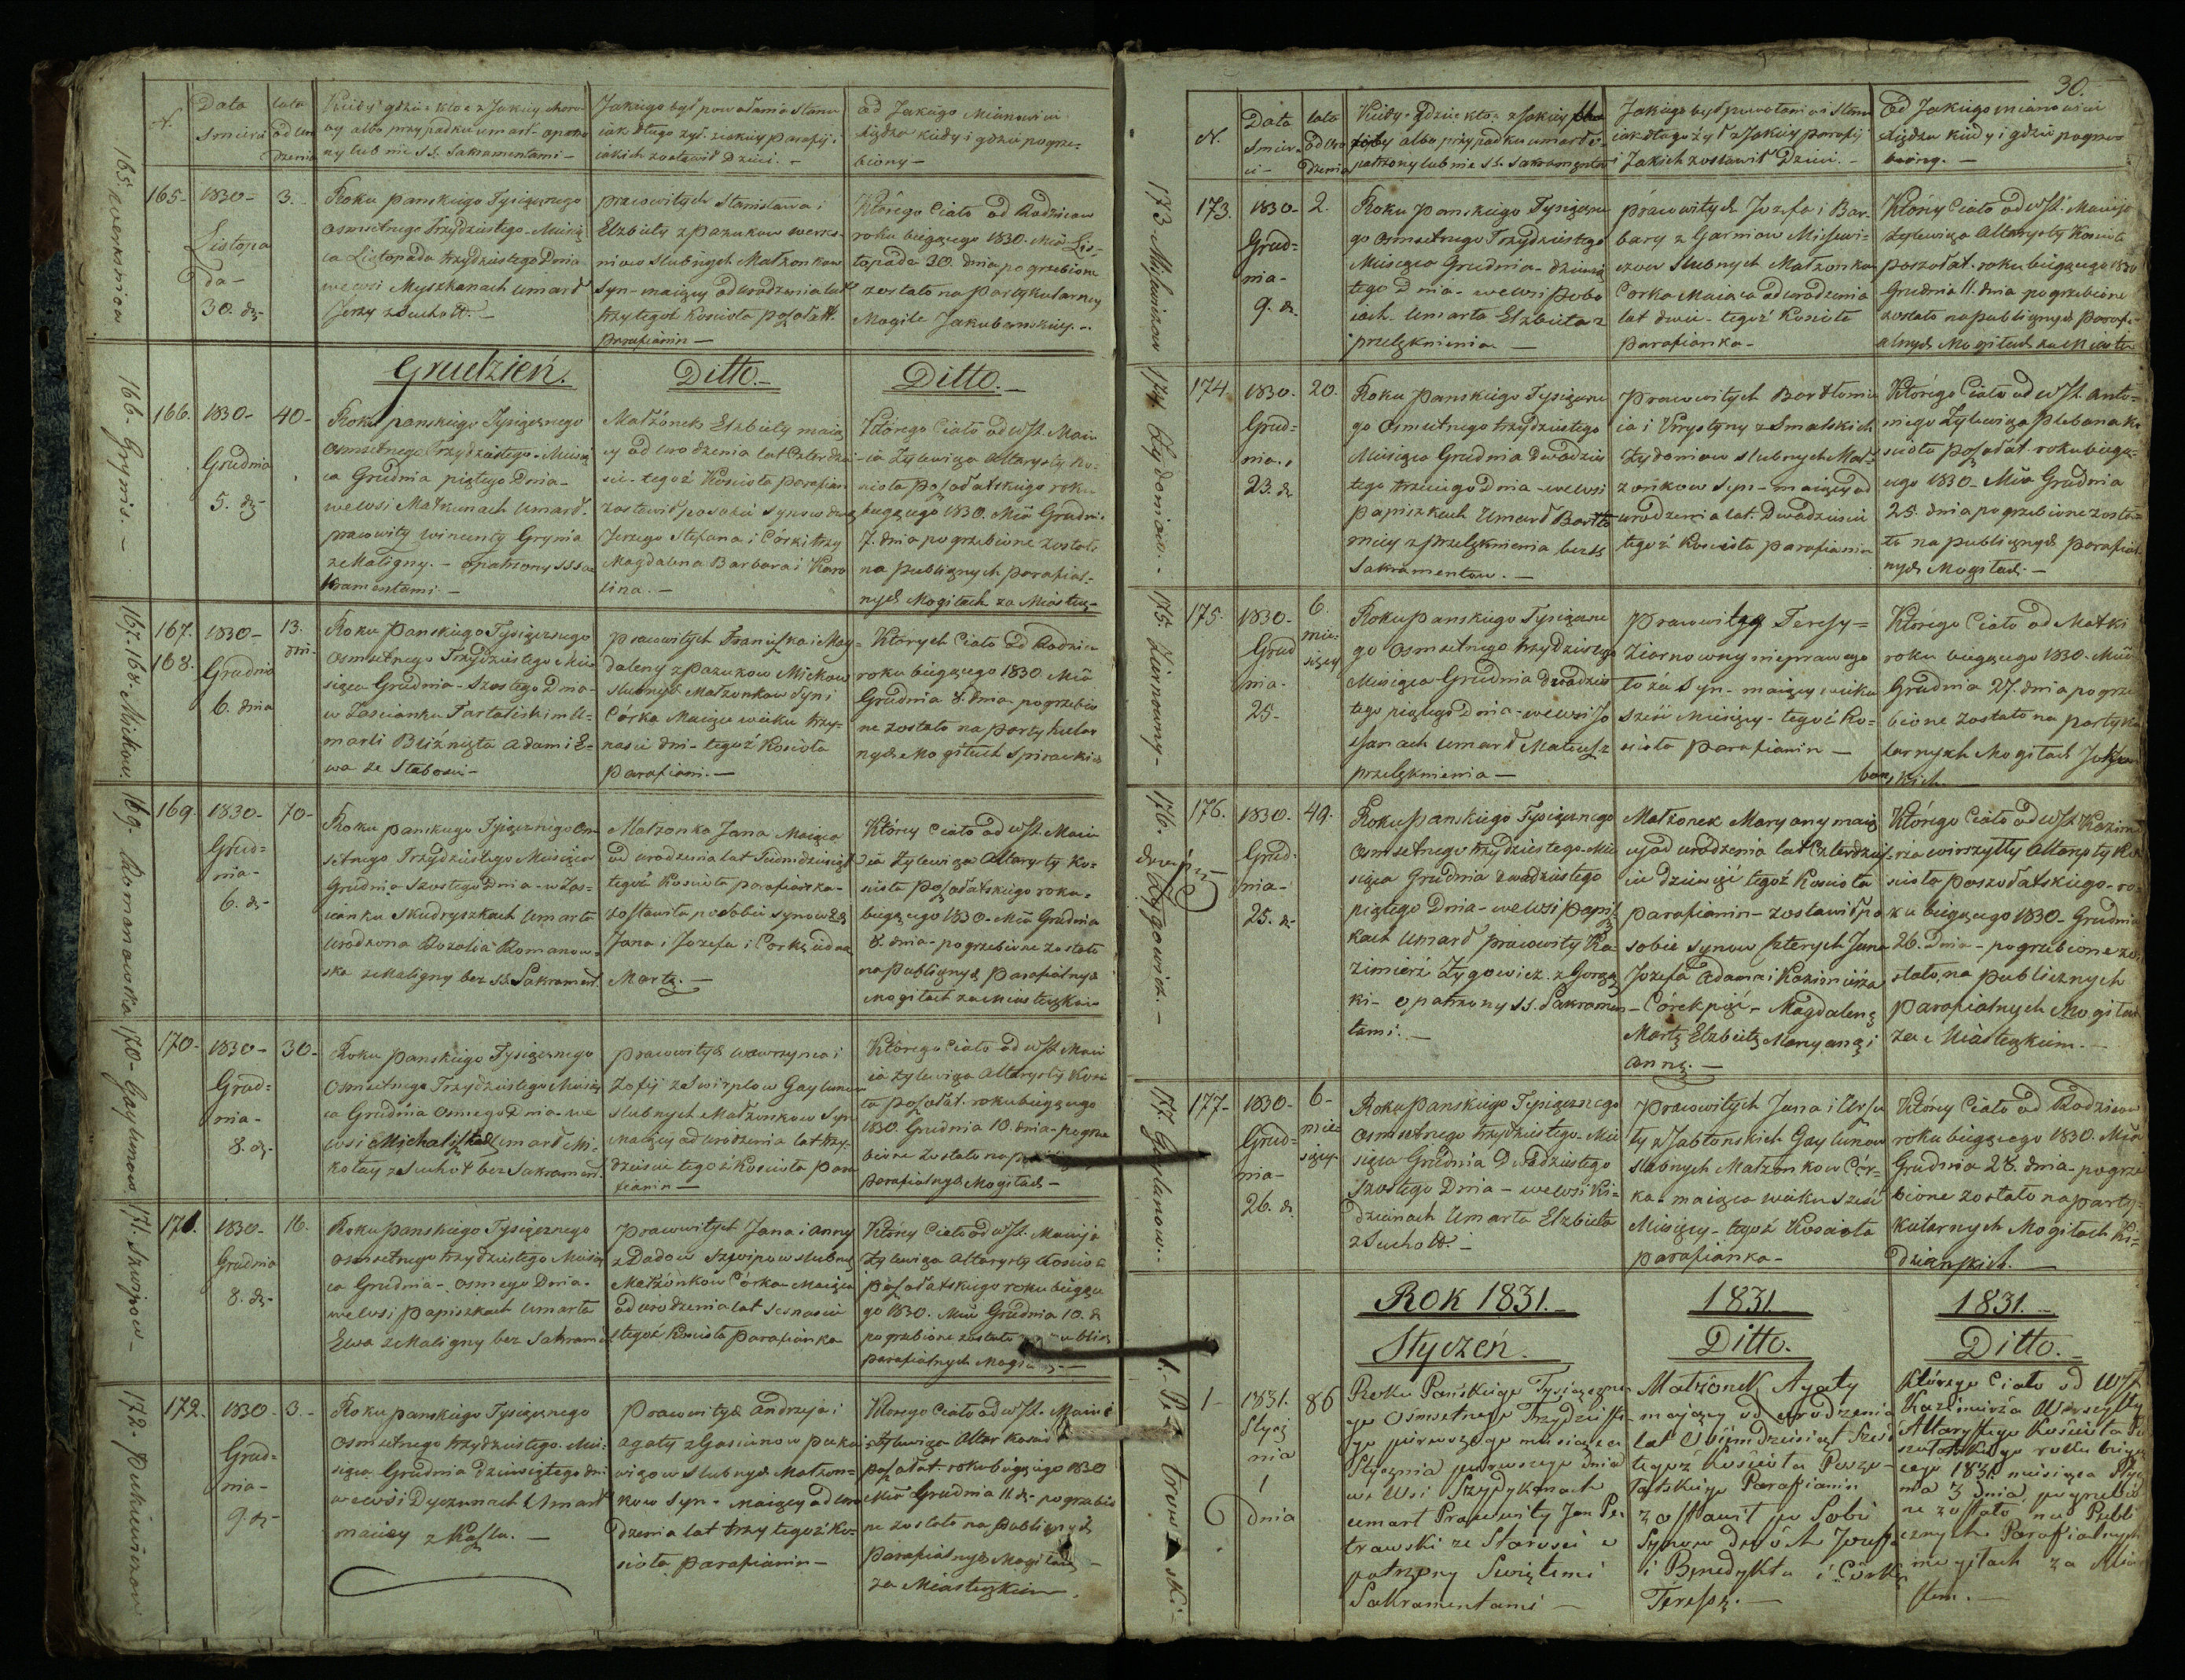 N.
Data
Smierci
lata
od Uro
dzenia
Kiedy gdzie kto z Jakiey choro
by albo przypadku umarł opatrzo
ny lub nie SS. Sakramentami –
Jakiego był powołania Stanu
iak długo żył z iakiey parafij i
iakich zostawił Dzieci. –
od Jakiego Mianowicie
Xiędza kiedy i gdzie pogrze=
biony –
165. wersniow
165–
1830–
Listopa
da–
30. d.
3.
Roku panskiego Tysiącznego
Osmsetnego Trzydziestego Miesią
ca Listopada trzydziestego Dnia
we wsi Myszkanach umarł
Jerzy z Suchott. –
pracowitych Stanisława i
Elzbiety z pazukow wers=
niow slubnych Małzonkow
Syn – maiący od urodzenia lat
trzy tegoż Kościoła poszołatt.
Parafianin –
Którego Ciało od Rodzicow
roku biegącego 1830. Mca Lis=
topada 30. dnia pogrzebione
zostało na partykularney
Mogile Jakubanskiey. –
Grudzień.
Ditto. –
Ditto. –
166. Grynis. –
166.
1830–
Grudnia
5. d.
40–
Roku panskiego Tysiącznego
Osmsetnego Trzydziestego Miesią
ca Grudnia piątego Dnia –
we wsi Matzunach umarł
pracowity wincenty Grynis
z Maligny. – opatrzony SS. Sa
kramentami –
Małżonek Elzbiety maią
cy od urodzenia lat Czterdzie
sci – tegoż Kościoła parafian
zostawił po sobie Synow dwoch
Jerzego Stefana i Córki trzy
Magdalena Barbara i Karo
lina. –
Którego Ciało od WJX. Macie
ia Zylewicza Altarysty Ko=
scioła poszołatskiego roku
biegącego 1830. Mca Grudnia
7. dnia pogrzebione zostało
na publicznych parafial=
nych Mogiłach za Miastecz–
167. 168. Mickow.
167.
168.
1830–
Grudnia
6. dnia
13.
dni.
Roku Panskiego Tysiącznego
Osmsetnego Trzydziestego Mie
siąca Grudnia – Szostego Dnia –
w Zascianku Tartaliskim U=
marli Bliźnięta Adam i E=
wa ze Słabosci –
pracowitych Franciszka i Mag=
daleny z pazukow Mickow
slubnych Małzonkow Syn i
Córka Maiące wieku trzy=
nascie dni – tegoż Kościoła
parafiani. –
Których Ciało od Rodzicow
roku biegącego 1830 Mca
Grudnia 8. dnia – pogrzebio
ne zostało na partykular
nych Mogiłach Spirawkich
169. Romanowska
169.
1830–
Grud=
nia–
6. d.
70–
Roku panskiego Tysiącznego Osm
setnego Trzydziestego Miesiąca
Grudnia Szostego Dnia – w Zas=
cianku Skudryszkach umarła
urodzona Rozalia Romanow=
ska z Maligny bez SS. Sakrament.
Małzonka Jana Maiąca
od urodzenia lat Siedmdziesiąt
tegoż Kościoła parafianka –
zostawiła po sobie synow 2ch
Jana i Jozefa i Corkę iedną
Martę. –
Którey Ciało od WJX. Macie
ia Zylewicza Altarysty Ko=
scioła poszołatskiego roku
biegącego 1830. Mca Grudnia
8. dnia – pogrzebione zostało
na publicznych parafialnych
Mogiłach za Miasteczkiem
170. Gaylunow
170–
1830–
Grud=
nia–
8. d.
30–
Roku panskiego Tysiącznego
Osmsetnego Trzydziestego Miesią
ca Grudnia Osmego Dnia – we
wsi Michaliszkach umarł Mi=
kołay z Suchot bez Sakrament.
pracowitych wawrzynca i
Zofij z Swirplow Gaylunow
slubnych Małzonkow Syn
Maiący od urodzenia lat trzy
dziescie tegoż Kościoła para
fianin –
Którego Ciało od WJX. Macie
ia Zylewicza Altarysty Kosci
ła poszołat. roku biegącego
1830. Grudnia 10. dnia – pogrze
bione zostało na
parafialnych Mogiłach –
171. Szwipow –
171.
1830–
Grudnia
8. d.
16.
Roku panskiego Tysiącznego
Osmsetnego trzydziestego Miesią
ca Grudnia – osmego Dnia –
we wsi papiszkach umarła
Ewa z Maligny bez Sakramen
pracowitych Jana i Anny
z Dadow Szwipow slubnych
Małżonkow Córka Maiąca
od urodzenia lat szesnascie
tegoż Kościoła parafianka
Którey Ciało od WJX. Macieja
Zylewicza Altarysty Kościoła
poszołatskiego roku biegące
go 1830. Mca Grudnia 10. d.
pogrzebione zostało
parafialnych
172. Pukiewiczow
172.
1830–
Grud=
nia–
9. d.
3.–
Roku panskiego Tysiącznego
Osmsetnego trzydziestego Mie=
siąca Grudnia dziewiątego dni
we wsi Dyczunach Umarł
maciey z Kaszlu. –
pracowitych Andrzeja i
agaty z Gasiunow puka
wiczow Slubnych Małzon=
kow Syn – maiący od uro
dzenia lat trzy tegoż Ko=
scioła parafianin –
Którego Ciało od WJX. Macie
ia Zylewicza Altar Kosci
poszołat. roku biegącego 1830
Mca Grudnia 11 d. pogrzebio
ne zostało na publicznych
parafialnych Mogiłach –
za Miasteczkiem.
30.
N.
Data
Smier=
ci–
lata
Od Uro
dzenia
Kiedy Gdzie kto z Jakiey Cho
roby albo przypadku umarł o=
patrzony lub nie SS. Sakramenta
Jakiego był powołania Stanu
iak długo żył z Jakiey parafij
i Jakich zostawił Dzieci. –
Od Jakiego mianowicie
Xiędza kiedy i gdzie pogrze
biony. –
173.
1830–
Grud=
nia–
9. d.
2.
Roku Panskiego Tysiączne
go Osmsetnego Trzydziestego
Miesiąca Grudnia – dziewią
tego Dnia – we wsi pobo
iach Umarła Elzbieta z
przelęknienia –
pracowitych Jozefa i Bar=
bary z Garniow
Slubnych Małzonkow
Corka Maiąca od urodzenia
lat dwie – tegoż Kościoła
parafianka –
Którey Ciało od WJX. Macieja
Zylewicza Altarysty Kościoła
poszołat. roku biegącego 1830
Grudnia 11. dnia pogrzebione
zostało na publicznych parafi=
alnych Mogiłach za Miaste
174. Zydoniow. –
174
1830.
Grud=
nia.
23. d.
20.
Roku Panskiego Tysiączne
go Osmsetnego trzydziestego
Miesiąca Grudnia dwadzies
tego trzeciego Dnia – we wsi
papiszkach Umarł Bartło
miey z przelęknienia bez SS
Sakramentow. –
Pracowitych Bartłomie
ia i Krystyny z Smalskich
Zydoniow slubnych Mał=
zońkow Syn – maiący od
urodzenia lat. Dwadziescie
tegoż Kościoła parafianin
Którego Ciało od WJX. Anto=
niego Zylewicza Plebana Ko
scioła poszołat. roku biegą=
cego 1830– Mca Grudnia
25. dnia pogrzebione zosta=
ło na publicznych parafial
nych Mogiłach. –
175. Ziernowny –
175.
1830–
Grud
nia–
25–
6.
mie=
sięcy
Roku panskiego Tysiączne
go Osmsetnego trzydziestego
Miesiąca Grudnia dwadzies
tego piątego Dnia – we wsi Jo
Umarł Mateusz
przelęknienia –
Pracowitey Teressy=
Ziernowny nieprawego
łoża Syn – maiący wieku
sześć Miesięcy – tegoż Ko=
scioła parafianin –
Którego Ciało od Matki
roku biegącego 1830. Mca
Grudnia 27. dnia pogrze
bione zostało na partyku
larnych Mogiłach Jaku
banskich –
176. Zygowicz. –
176.
1830–
Grud=
nia–
25. d.
49.
Roku panskiego Tysiącznego
Osmsetnego trzydziestego Mie
siąca Grudnia dwadziestego
piątego Dnia – we wsi papisz
kach Umarł pracowity Ka=
zimierz Zygowicz. z Gorącz
ki– opatrzony SS. Sakramen
tami. –
Małzonek Maryany maią
cy od urodzenia lat Czterdzies
cie dziewięć tegoż Kościoła
parafianin – zostawił po
sobie synow Czterych Jana
Jozefa Adama i Kazimierza
– Córek pięć – Magdalenę
Martę Elzbietę Maryannę i
Annę. –
Którego Ciało od WJX. Kazimi
rza wierszyłły Altarysty Ko
scioła poszołatskiego – ro=
ku biegącego 1830– Grudnia
26. Dnia – pogrzebione zo=
stało, na publicznych
parafialnych Mogiłach
za Miasteczkiem. –
177. Gaylunow. –
177–
1830–
Grud=
nia–
26. d.
6–
mie
sięcy–
Roku panskiego Tysiącznego
Osmsetnego trzydziestego Mie
siąca Grudnia Dwadziestego
szostego Dnia – we wsi Ki=
dzianach Umarła Elzbieta
z Suchott –
Pracowitych Jana i Urszu
ły z Jabłonskich Gaylunow
slubnych Małzonkow Cór=
ka– maiąca wieku sześć
Miesięcy – tegoż Kościoła
parafianka –
Którey Ciało od Rodzicow
roku biegącego 1830. Mca
Grudnia 28. dnia – pogrze
bione zostało na party=
kularnych Mogiłach Ki=
dzianskich. –
ROK 1831. –
1831.
1831. –
Styczeń.
Ditto.
Ditto. –
1–
1831.
Stycz
nia
1
Dnia
86
Roku Pańskiego Tysiączne
go Osmsetnego Trzydzieste
go pierwszego miesiąca
Stycznia pierwszego Dnia
we Wsi Szydykonach
umarł Pracowity Jan Pie
trowski ze Starosci o
patrzony Swiętemi
Sakramentami –
Małżonek Agaty
mający od urodzenia
lat Osiemdziesiąt Sześć
tegoż Kościoła Poszo=
łatskiego Parafianin
zostawił po Sobie
Synow dwóch Jozefa
i Benedykta i Córkę
Teressę. –
Którego Ciało od WJX
Kazimierza Wierszyłły
Altarystego Kościoła Po
szołatskiego roku bieżą
cego 1831 miesiąca Stycz
nia 3 dnia pogrzebio
ne zostało na Publi
cznych Parafialnych
mogiłach za Mia
stem. –